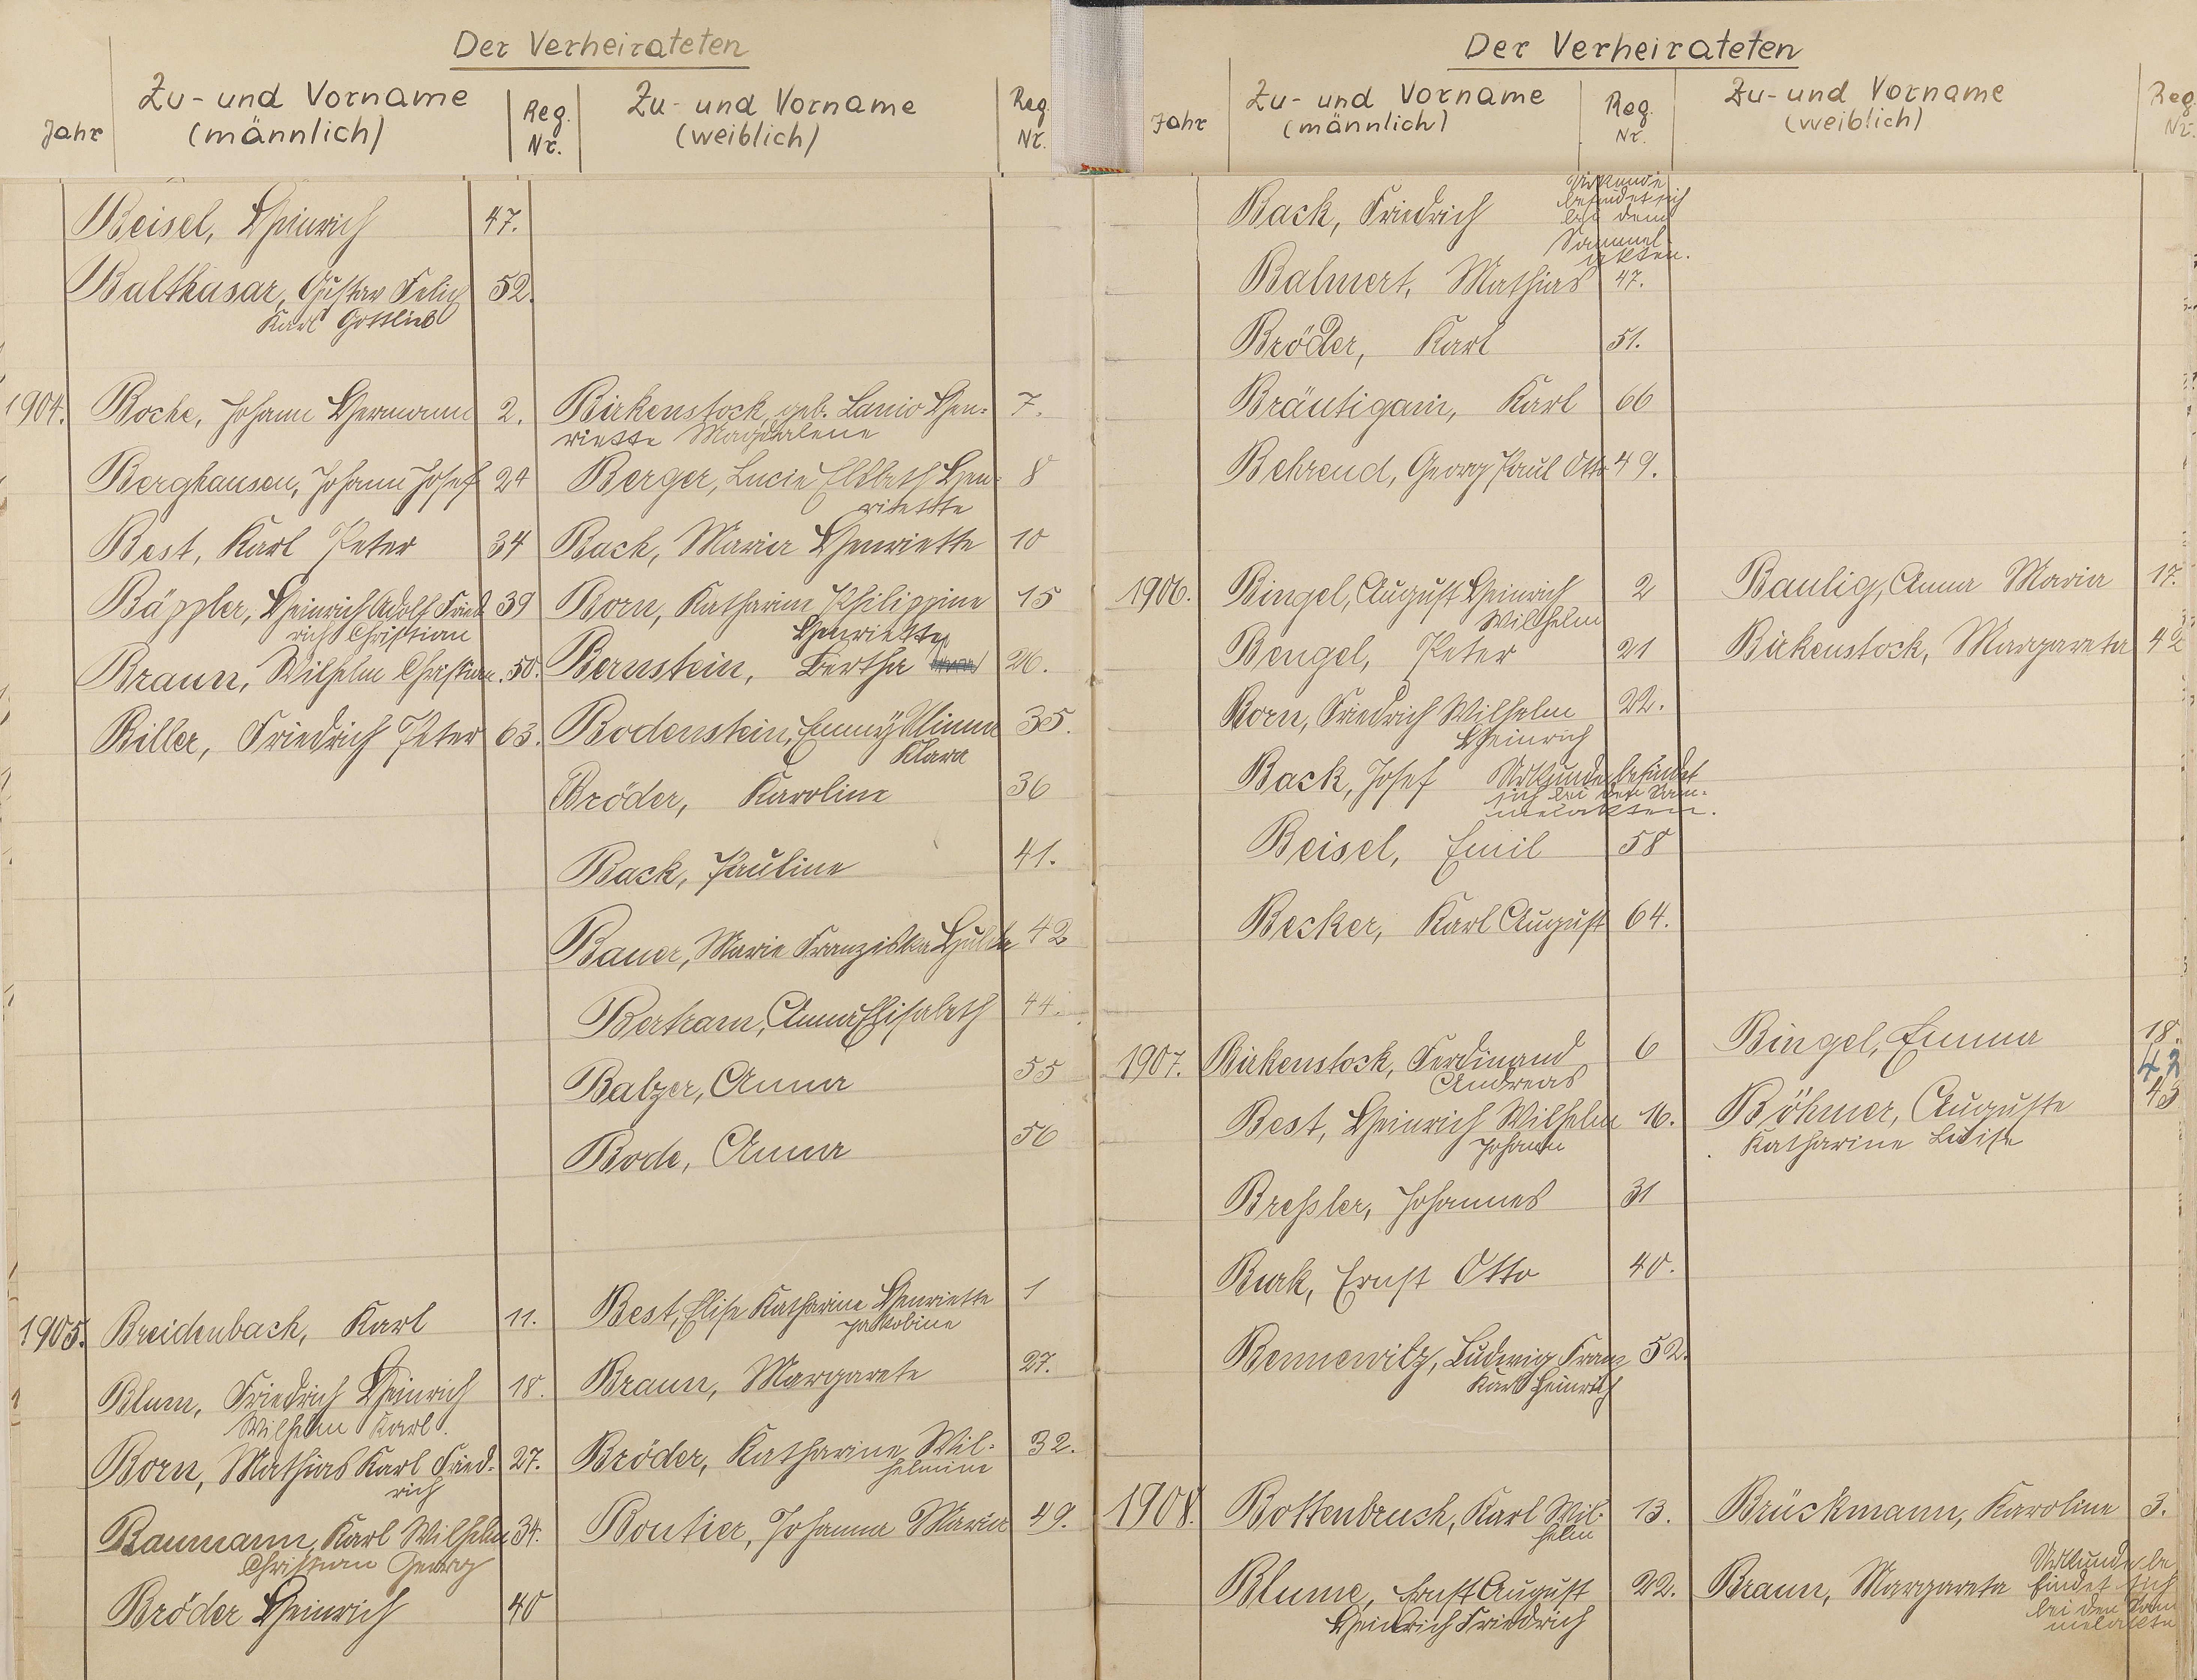 Der Verheirateten
Jahr
Zu- und Vorname
(männlich)
Reg.
Nr.
Zu- und Vorname
(weiblich)
Reg
Nr.
Beisel, Heinrich 47.
Balthasar, Gustav Felix 52.
Karl Gottlieb
1904. Boche, Johann Hermann 2. Birkenstock, geb. Lanio Hen- 7.
riette Magdalene
Berghausen, Johann Josef 24 Berger, Lucie Elsbeth Hen- 8
riette
Best, Karl Peter 34 Back, Maria Henriette 10
Bäppler, Heinrich Adolf Fried- 39 Born, Katharine Philippine 15
rich Christian Henriette
Braun, Wilhelm Christian. 50. Bernstein, Bertha 26.
Biller, Friedrich Peter 63. Bodenstein, Emmy Minna 35.
Klara
Bröder, Karoline 36
Back, Pauline 41.
Bauer, Marie Franziska Hulda 42
Bertram, Anna Elisabeth 44.
Balzer, Anna 55
Bode, Anna 56
1905. Breidenbach, Karl 11. Best, Elise Katharine Henriette 1
Jakobine
Blum, Friedrich Heinrich 18. Braun, Margarete 27.
Wilhelm Karl.
Born, Mathias Karl Fried- 27. Bröder, Katharine Wil- 32.
rich helmine
Baumann, Karl Wilhelm 34. Boutier, Johanna Maria 49.
Christian Georg
Bröder Heinrich 40
Der Verheirateten
Jahr
Zu- und Vorname
(männlich)
Reg.
Nr.
Zu- und Vorname
(weiblich)
Reg
Nr.
Back, Friedrich Urkunde
befindet sich
bei dem
Sammel-
akten.
Balmert, Mathias 47.
Bröder, Karl 51.
Bräutigam, Karl 66
Behrend, Georg Paul Otto 49.
1906. Bingel, August Heinrich 2 Baulig, Anna Maria 17.
Wilhelm
Bengel, Peter 21 Birkenstock, Margareta 42
Born, Friedrich Wilhelm 22.
Heinrich
Back, Josef Urkunde befindet
sich bei den Sam-
melakten.
Beisel, Emil 58
Becker, Karl August 64.
1907. Birkenstock, Ferdinand 6 Bingel, Emma 18.
Andreas 42
Best, Heinrich Wilhelm 16. Böhmer, Auguste 43
Johann Katharine Luise
Breßler, Johannes 31
Burk, Ernst Otto 40.
Bennewitz, Ludwig Franz 52.
Karl Heinrich
1908. Bottenbruch, Karl Wil- 13. Brückmann, Karoline 3.
helm
Blume, Ernst August 22. Braun, Margareta Urkunde be
Heinrich Friedrich findet sich
bei den Sam
melakten